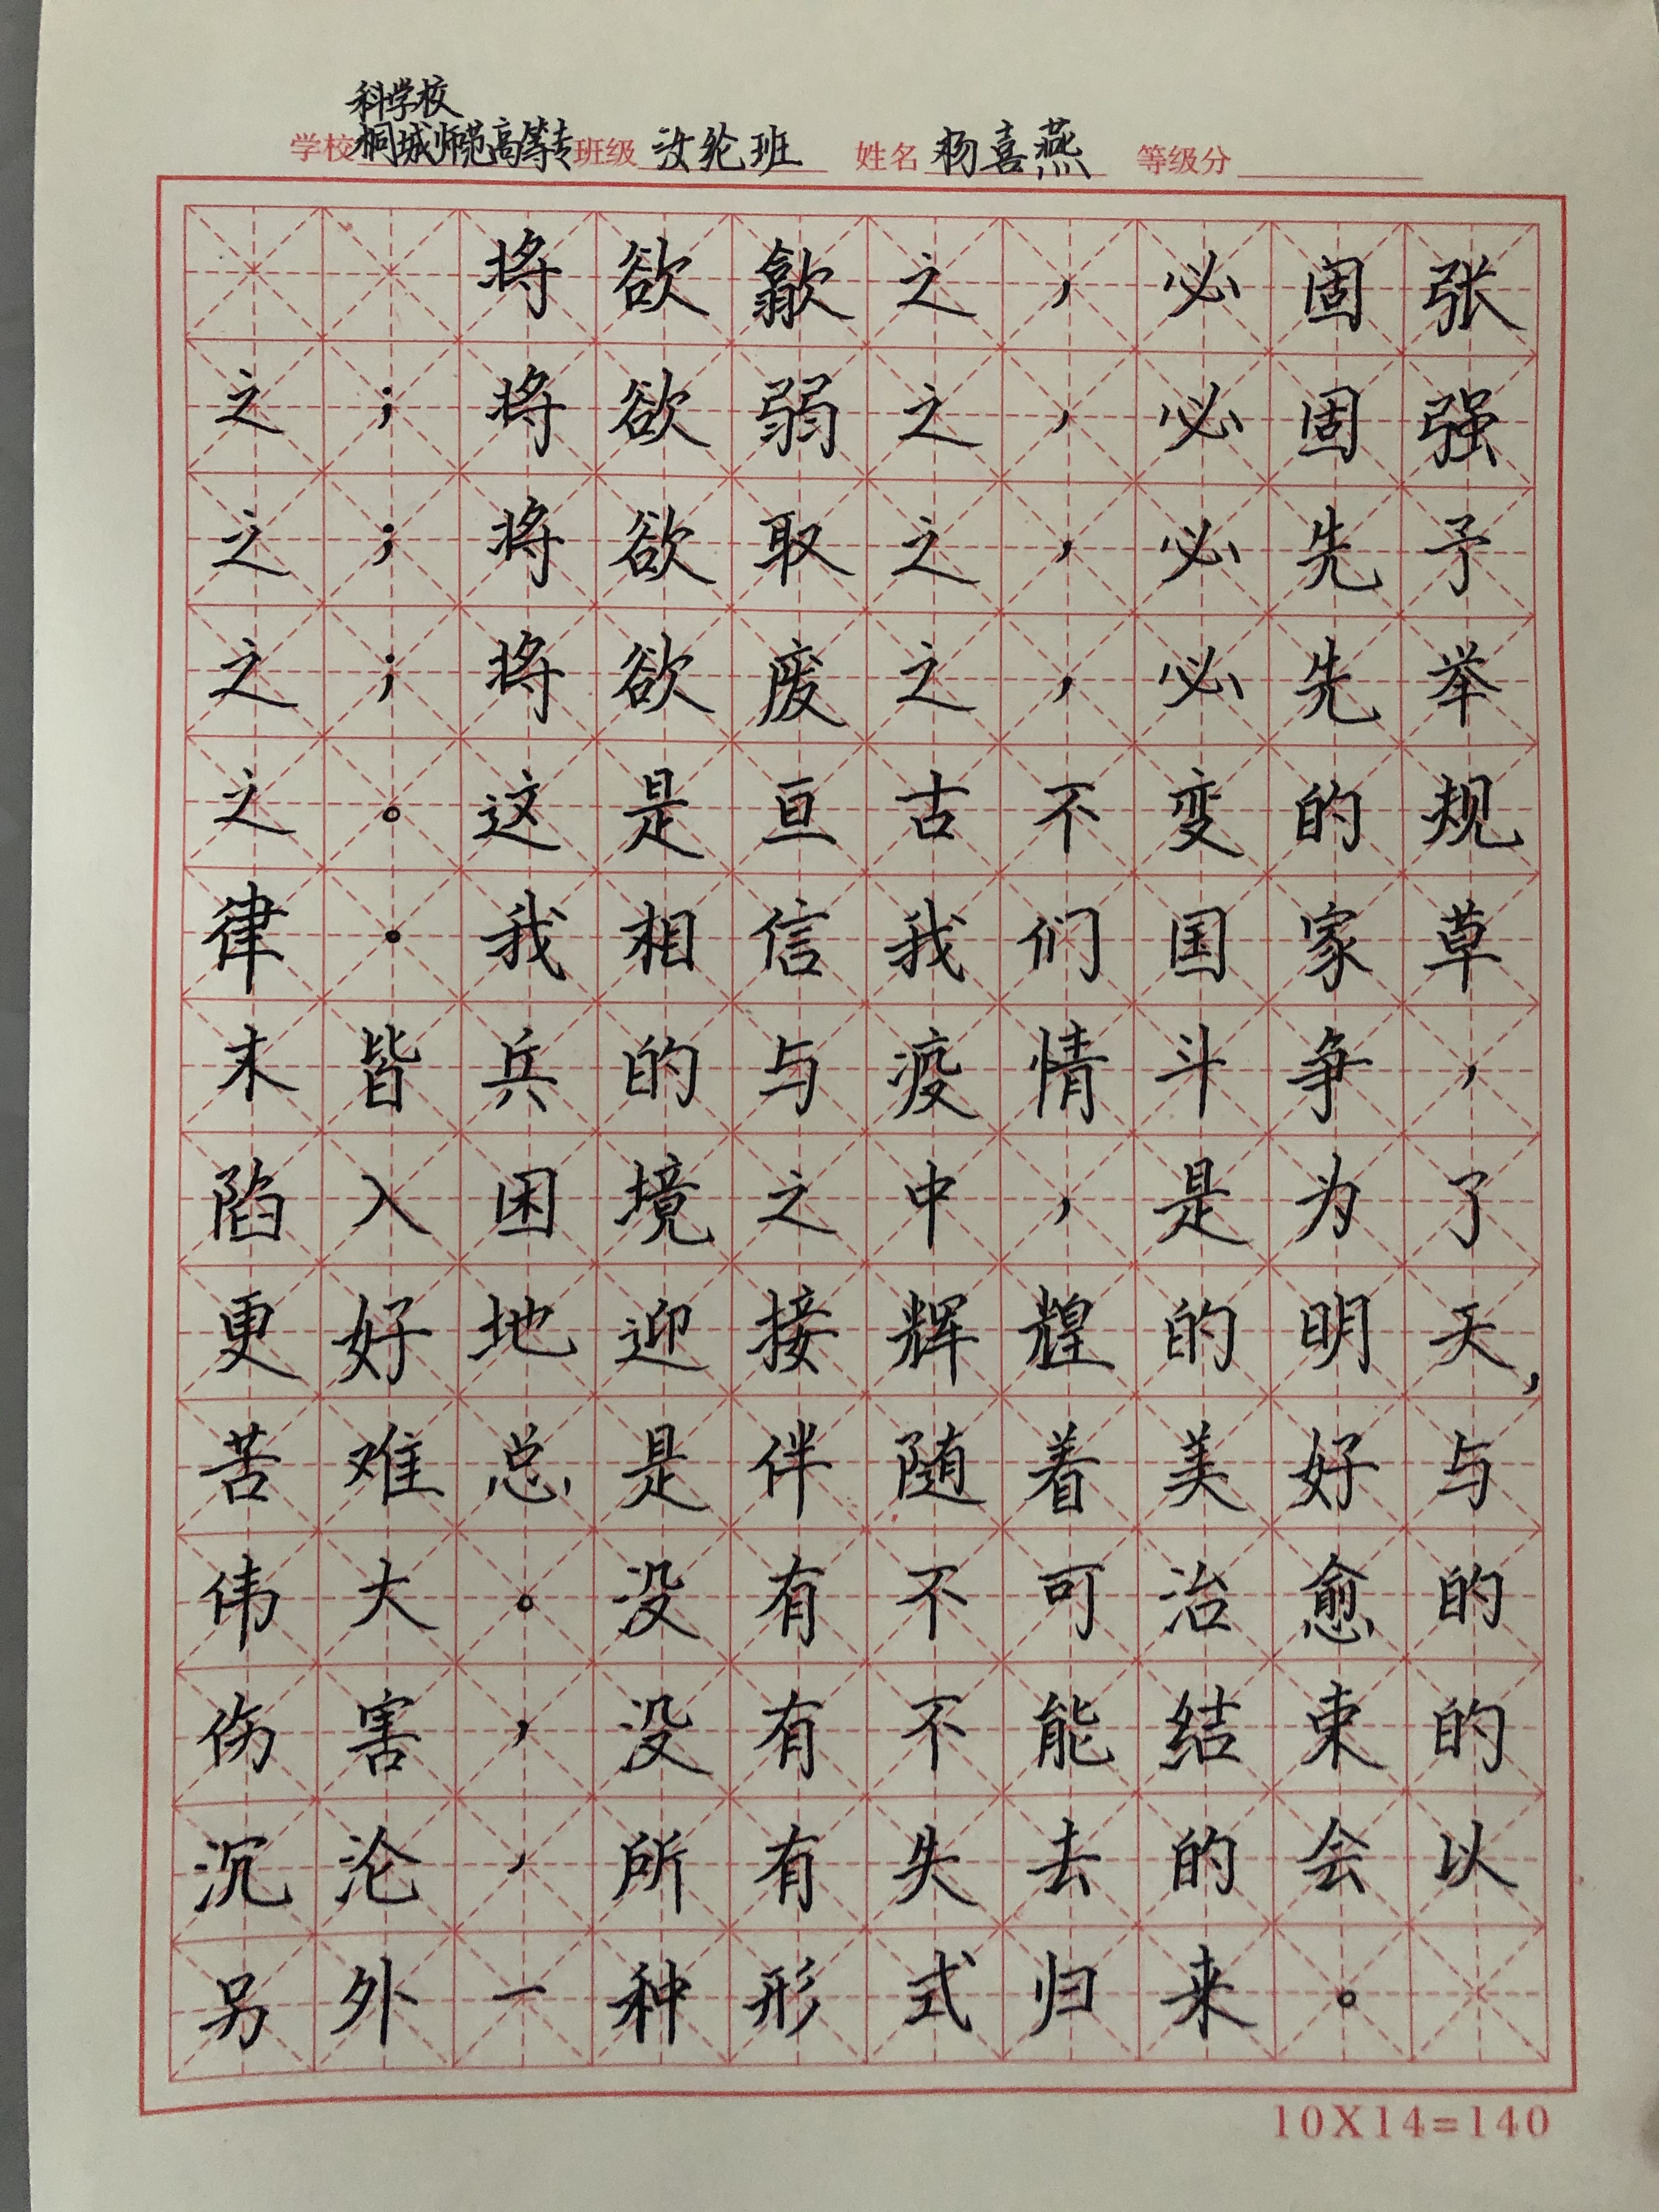 科学校
学校 桐城师范高等专 班级 汝纶班 姓名 杨喜燕 等级分
将欲歙之，必固张
之；将欲弱之，必固强
之；将欲取之，必先予
之；将欲废之，必先举
之。这是亘古不变的规
律。我相信我们国家草
末皆兵的与疫情斗争，
陷入困境之中，是为了
更好地迎接辉煌的明天，
苦难总是伴随着美好与
伟大。没有不可治愈的
伤害，没有不能结束的
沉沦，所有失去的会以
另外一种形式归来。
10X14=140